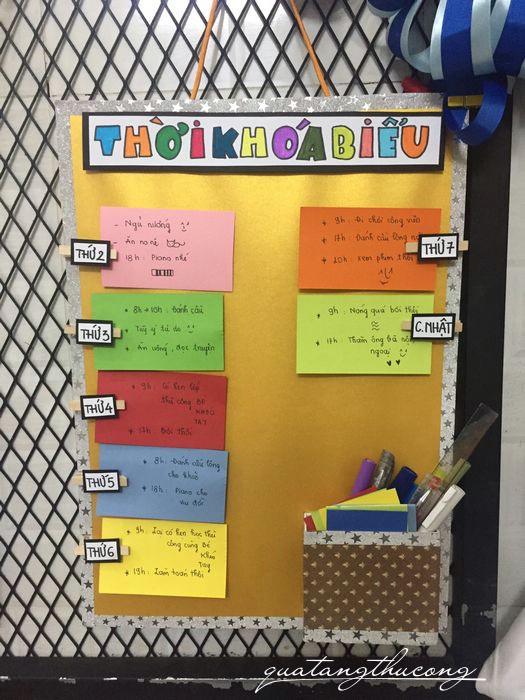 THỜI KHÓA BIỂU
THỨ 2
- Ngủ nướng
- Ăn no nê
18h: Piano nhé
THỨ 3
* 8h → 10h: Đánh cầu
* Tuỳ ý tự do
* Ăn uống, đọc truyện
THỨ 4
* 9h: Có hẹn lớp
thủ công BÉ
KHÉO
TAY
* 17h: Bơi thôi
THỨ 5
* 8h: Đánh cầu lông
cho khoẻ
* 18h: Piano cho
vui đời
THỨ 6
* 9h: Lại có hẹn học thủ
công cùng Bé
Khéo
Tay
* 19h: Làm toán thôi
THỨ 7
* 9h: Đi chơi công viên
* 17h: Đánh cầu lông
* 20h: Xem phim thôi
C.NHẬT
* 9h: Nóng quá bơi thôi
* 17h: Thăm ông bà nội
ngoại
quatangthucong